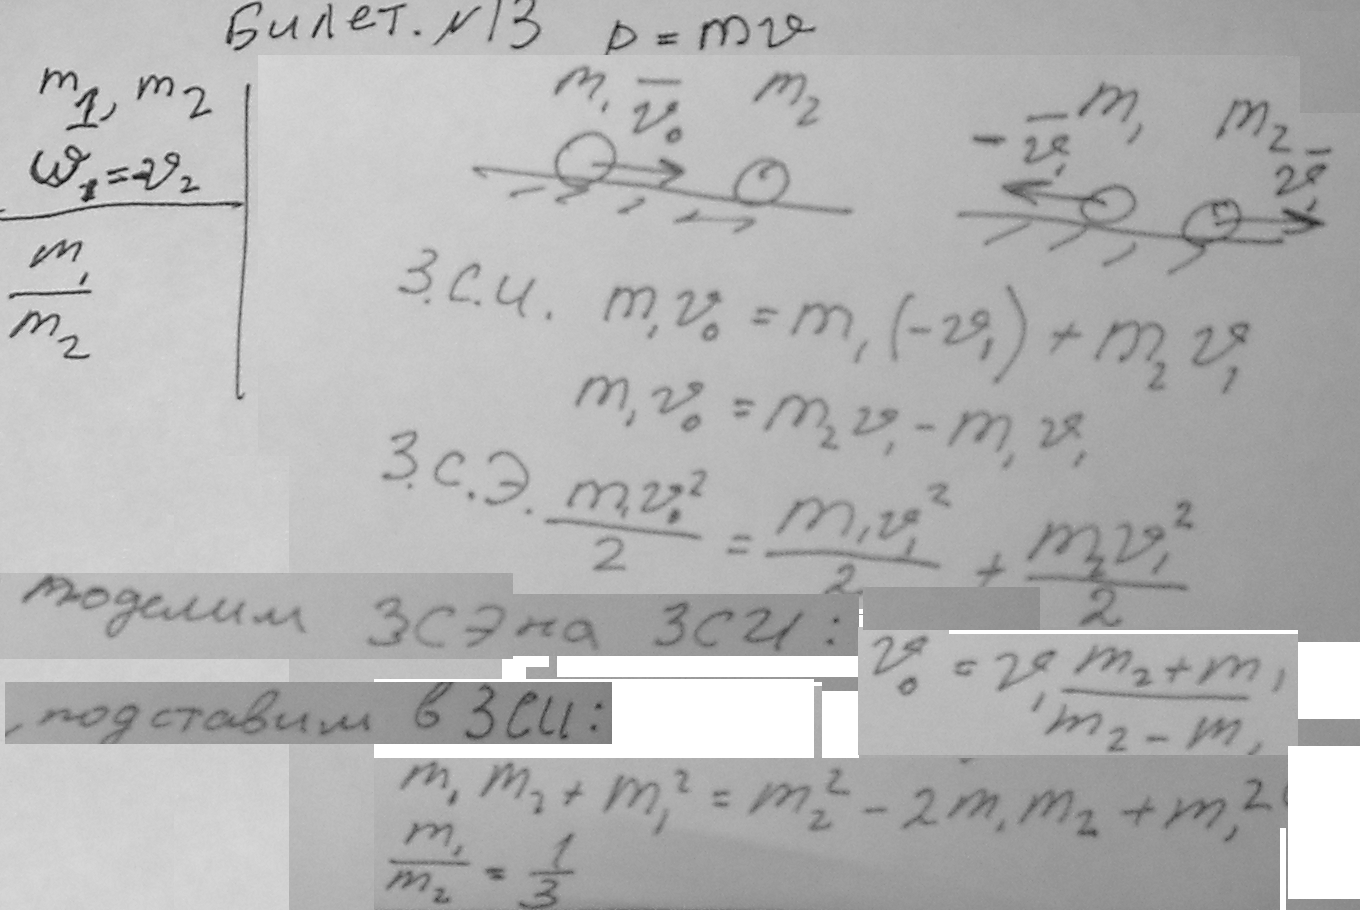 Билет. №13 p = mv
m₁, m₂
v₁ = -v₂
m₁/m₂
m₁ v̅₀ m₂
-v̅₁ m₁ m₂ v̅₁
З.С.И. m₁v₀ = m₁(-v₁) + m₂v₁
m₁v₀ = m₂v₁ - m₁v₁
З.С.Э. m₁v₀²/2 = m₁v₁²/2 + m₂v₁²/2
поделим ЗСЭ на ЗСИ:
v₀ = v₁ (m₂+m₁)/(m₂-m₁)
, подставим в ЗСИ:
m₁m₂ + m₁² = m₂² - 2m₁m₂ + m₁²
m₁/m₂ = 1/3